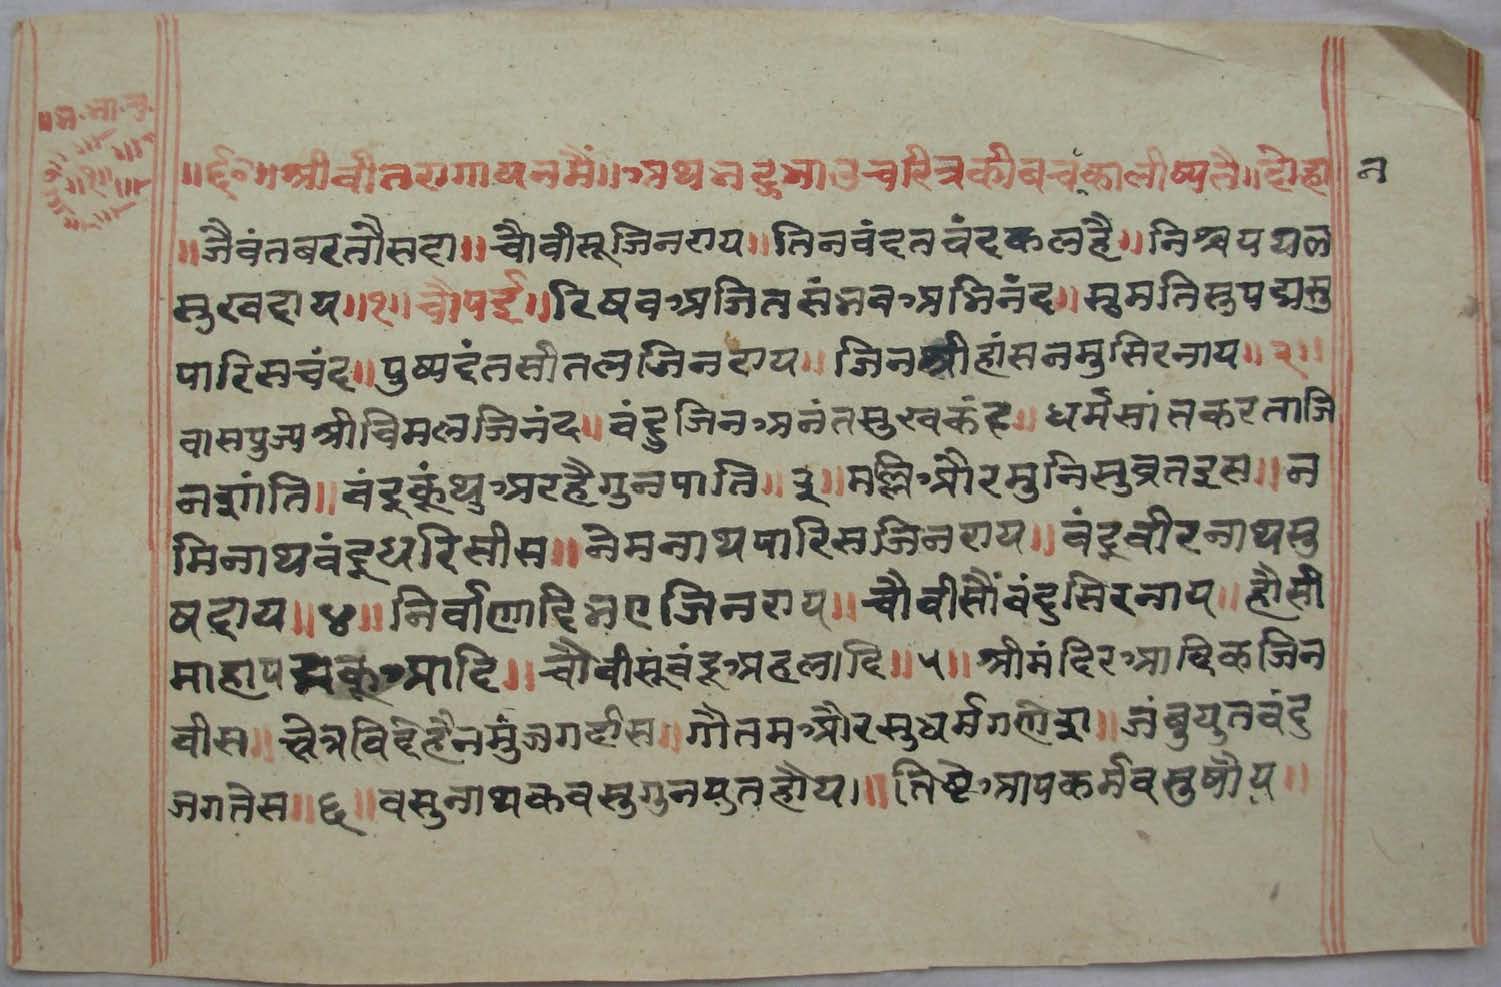 ॥ भ. बा. चु.
॥ १ ॥
॥ ६ं० ॥ श्री वीतरागाय नमैं ॥ अथ भद्रबाउ चरित्र की बचंका लीष्यतै ॥ दोहा
न
॥ जैवंत बरतौ सदा ॥ चौवीसू जिनराय ॥ तिन वंदत वंद कल है ॥ निश्चय थल
सुखदाय ॥ १ ॥ चौपई ॥ रिषव अजित संभव अभिनंद ॥ सुमति सुपद्म सु
पारिस चंद ॥ पुष्पदंत सीतल जिनराय ॥ जिन श्रीहांस नमु सिरनाय ॥ २ ॥
वासपुज्य श्री विमल जिनंद ॥ वंदु जिन अनंत सुखकंद ॥ धर्म सांत करता जि
न शांति ॥ वंदू कूंथु अरहै गुन पाति ॥ ३ ॥ मल्लि और मुनिसुव्रत इस ॥ न
मिनाथ वंदू धरि सीस ॥ नेमनाथ पारिस जिनराय ॥ वंदु वीरनाथ सु
षदाय ॥ ४ ॥ निर्वाणादि भए जिनराय ॥ चौवीसौं वंदु सिरनाय ॥ हौसी
माहापद्म कू आदि ॥ चौवीसूं वंदू अहलादि ॥ ५ ॥ श्रीमंदिर आदिक जिन
वीस ॥ छेत्र विदेहै नमुं जगदीस ॥ गौतम और सुधर्म गणेश ॥ जंबुयुत वंदु
जगतेस ॥ ६ ॥ वसु नाथक वसु गुन युत हौय ॥ तिष्टे आप कर्म वसु षोय ॥